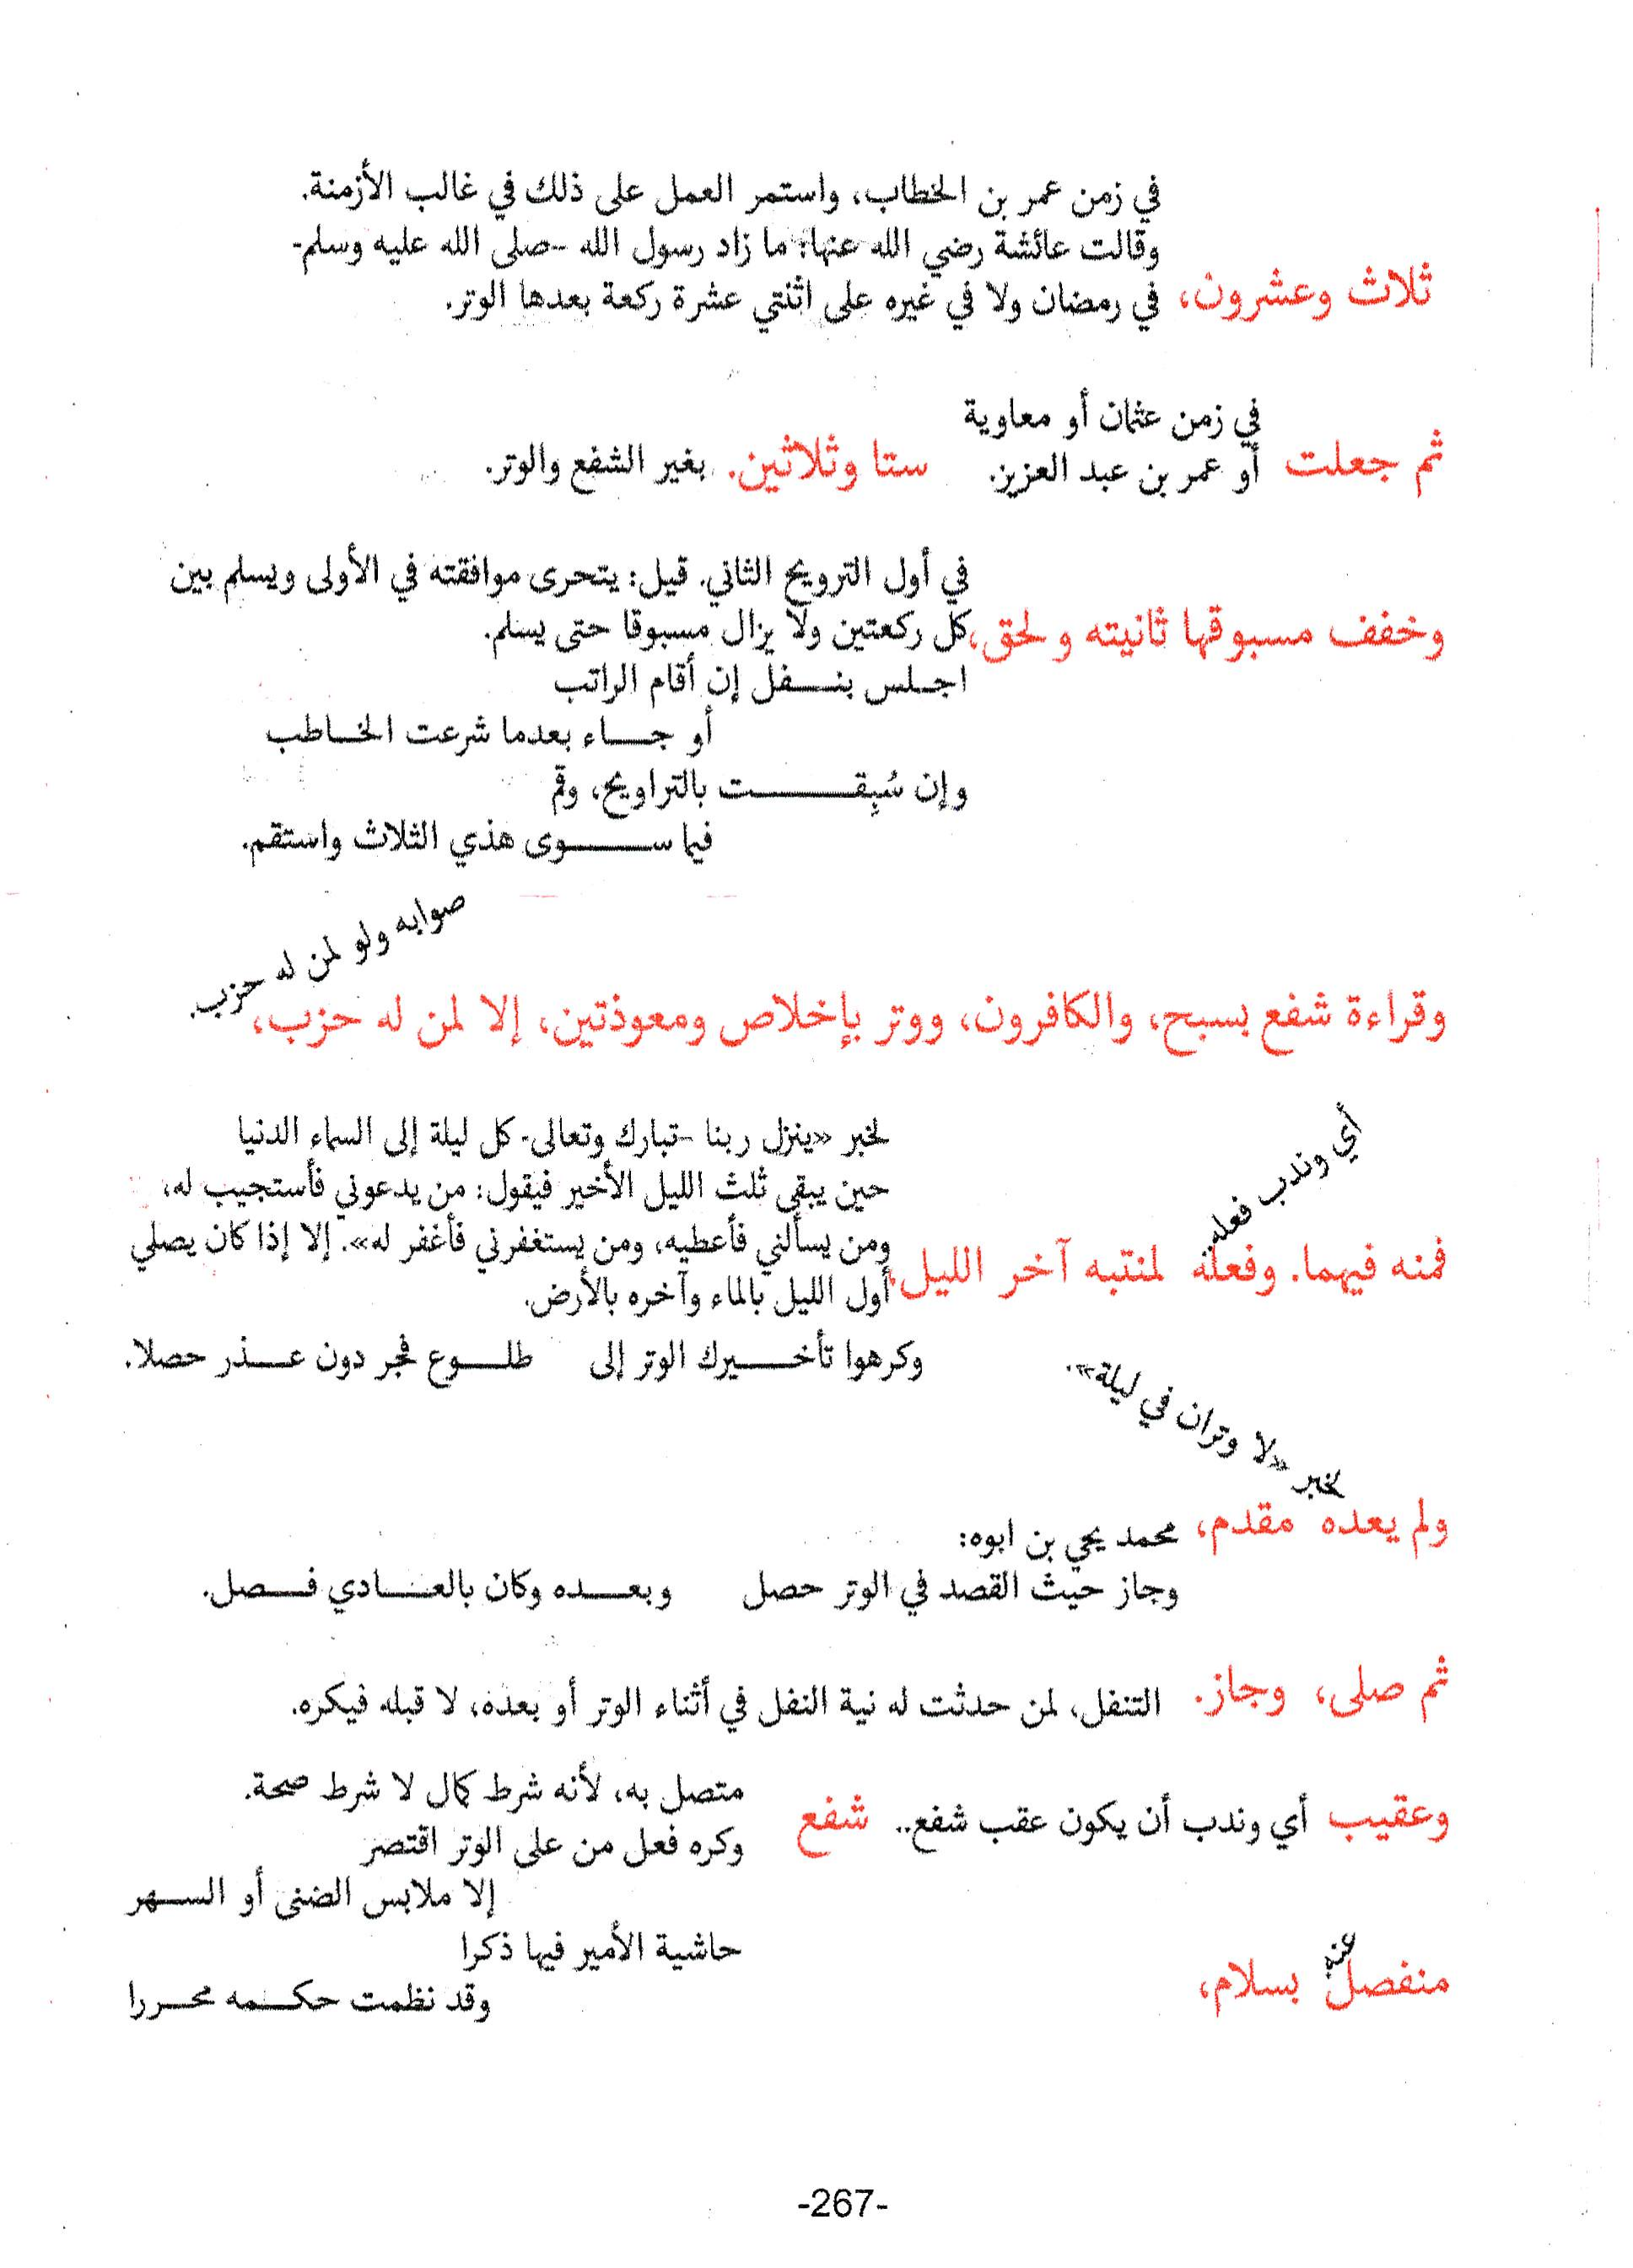 في زمن عمر بن الخطاب، واستمر العمل على ذلك في غالب الأزمنة.
وقالت عائشة رضي الله عنها: ما زاد رسول الله -صلى الله عليه وسلم-
ثلاث وعشرون، في رمضان ولا في غيره على اثنتي عشرة ركعة بعدها الوتر.
في زمن عثمان أو معاوية
ثم جعلت أو عمر بن عبد العزيز. ستا وثلاثين. بغير الشفع والوتر.
في أول الترويح الثاني. قيل: يتحرى موافقته في الأولى ويسلم بين
وخفف مسبوقها ثانيته ولحق، كل ركعتين ولا يزال مسبوقا حتى يسلم.
اجلس بنفل إن أقام الراتب
أو جاء بعدما شرعت الخاطب
وإن سُبِقت بالتراويح، وقم
فيما سوى هذي الثلاث واستقم.
صوابه ولو لمن له حزب.
وقراءة شفع بسبح، والكافرون، ووتر بإخلاص ومعوذتين، إلا لمن له حزب،
أي وندب فعله.
لخبر «ينزل ربنا -تبارك وتعالى- كل ليلة إلى السماء الدنيا
حين يبقى ثلث الليل الأخير فيقول: من يدعوني فأستجيب له،
ومن يسألني فأعطيه، ومن يستغفرني فأغفر له». إلا إذا كان يصلي
فمنه فيهما. وفعله لمنتبه آخر الليل،
أول الليل بالماء وآخره بالأرض.
وكرهوا تأخيرك الوتر إلى طلوع فجر دون عذر حصلا.
لخبر «لا وتران في ليلة».
ولم يعده مقدم، محمد يحي بن ابوه:
وجاز حيث القصد في الوتر حصل وبعده وكان بالعادي فصل.
ثم صلى، وجاز. التنفل، لمن حدثت له نية النفل في أثناء الوتر أو بعده، لا قبله فيكره.
متصل به، لأنه شرط كمال لا شرط صحة.
وعقيب أي وندب أن يكون عقب شفع.. شفع
وكره فعل من على الوتر اقتصر
إلا ملابس الضنى أو السهر
حاشية الأمير فيها ذكرا
عنه
منفصل بسلام،
وقد نظمت حكمه محررا
-267-